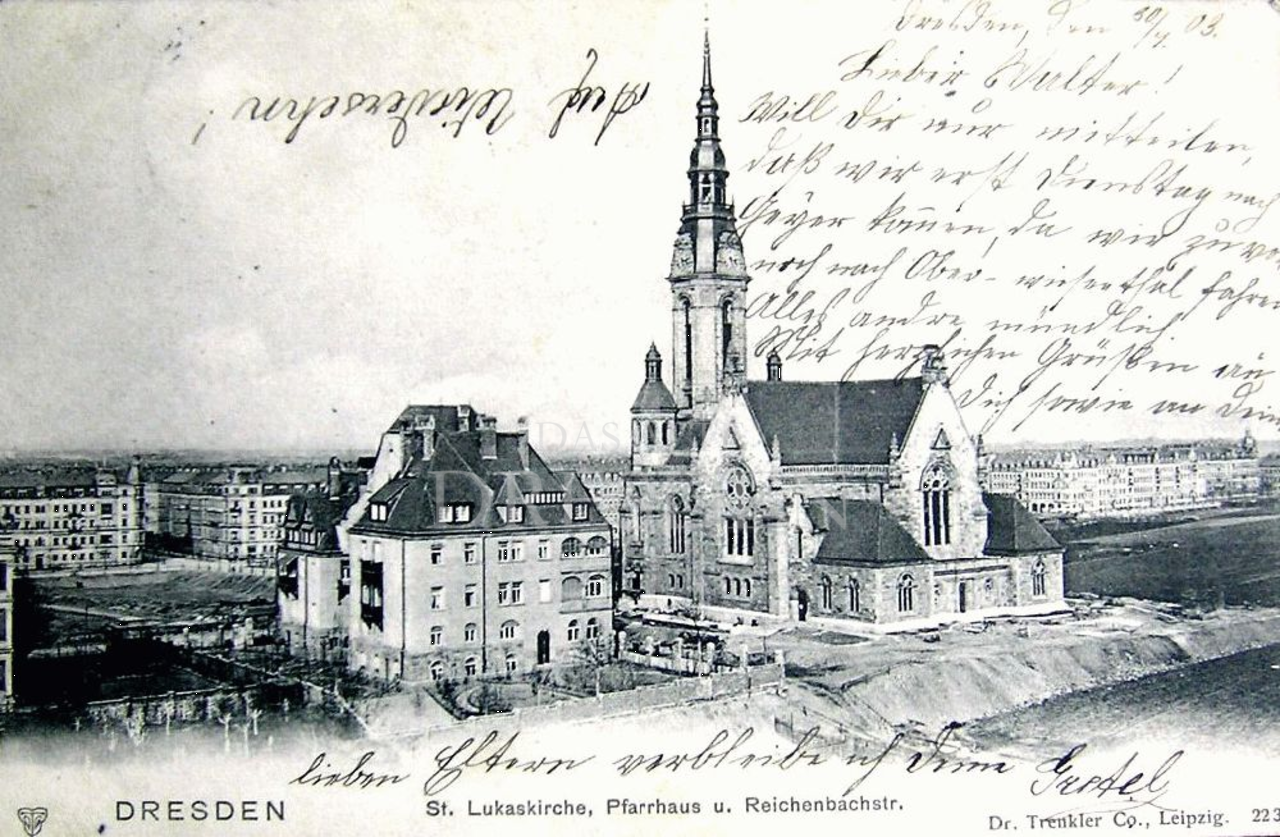 Dresden, den 30/4 03.
Lieber Walter!
Will Dir nur mitteilen,
daß wir erst Dienstag nach
Geyer komen, da wir zuvor
noch nach Ober-wiesenthal fahren
Alles andre mündlich
Mit herzlichen Grüßen an
Dich sowie an Dein
lieben Eltern verbleibe ich Deine Gretel
Auf Wiedersehn!
DRESDEN
St. Lukaskirche, Pfarrhaus u. Reichenbachstr.
Dr. Trenkler Co., Leipzig. 223
DAS